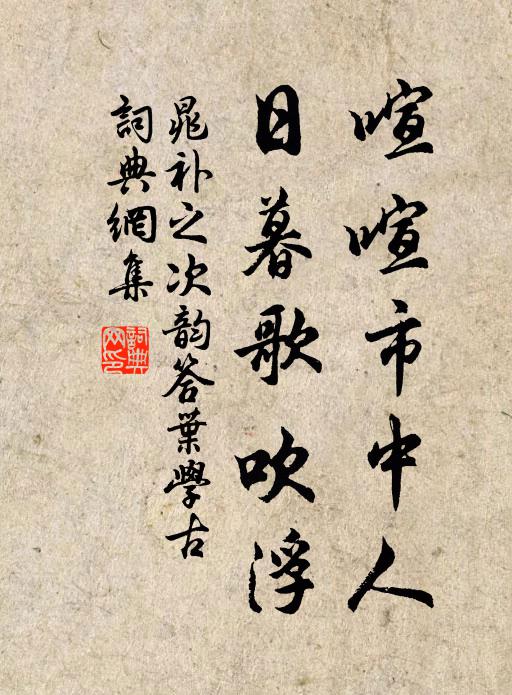 喧喧市中人
日暮歌吹浮
晁补之次韵答葉學古
詞典網集
詞典網印